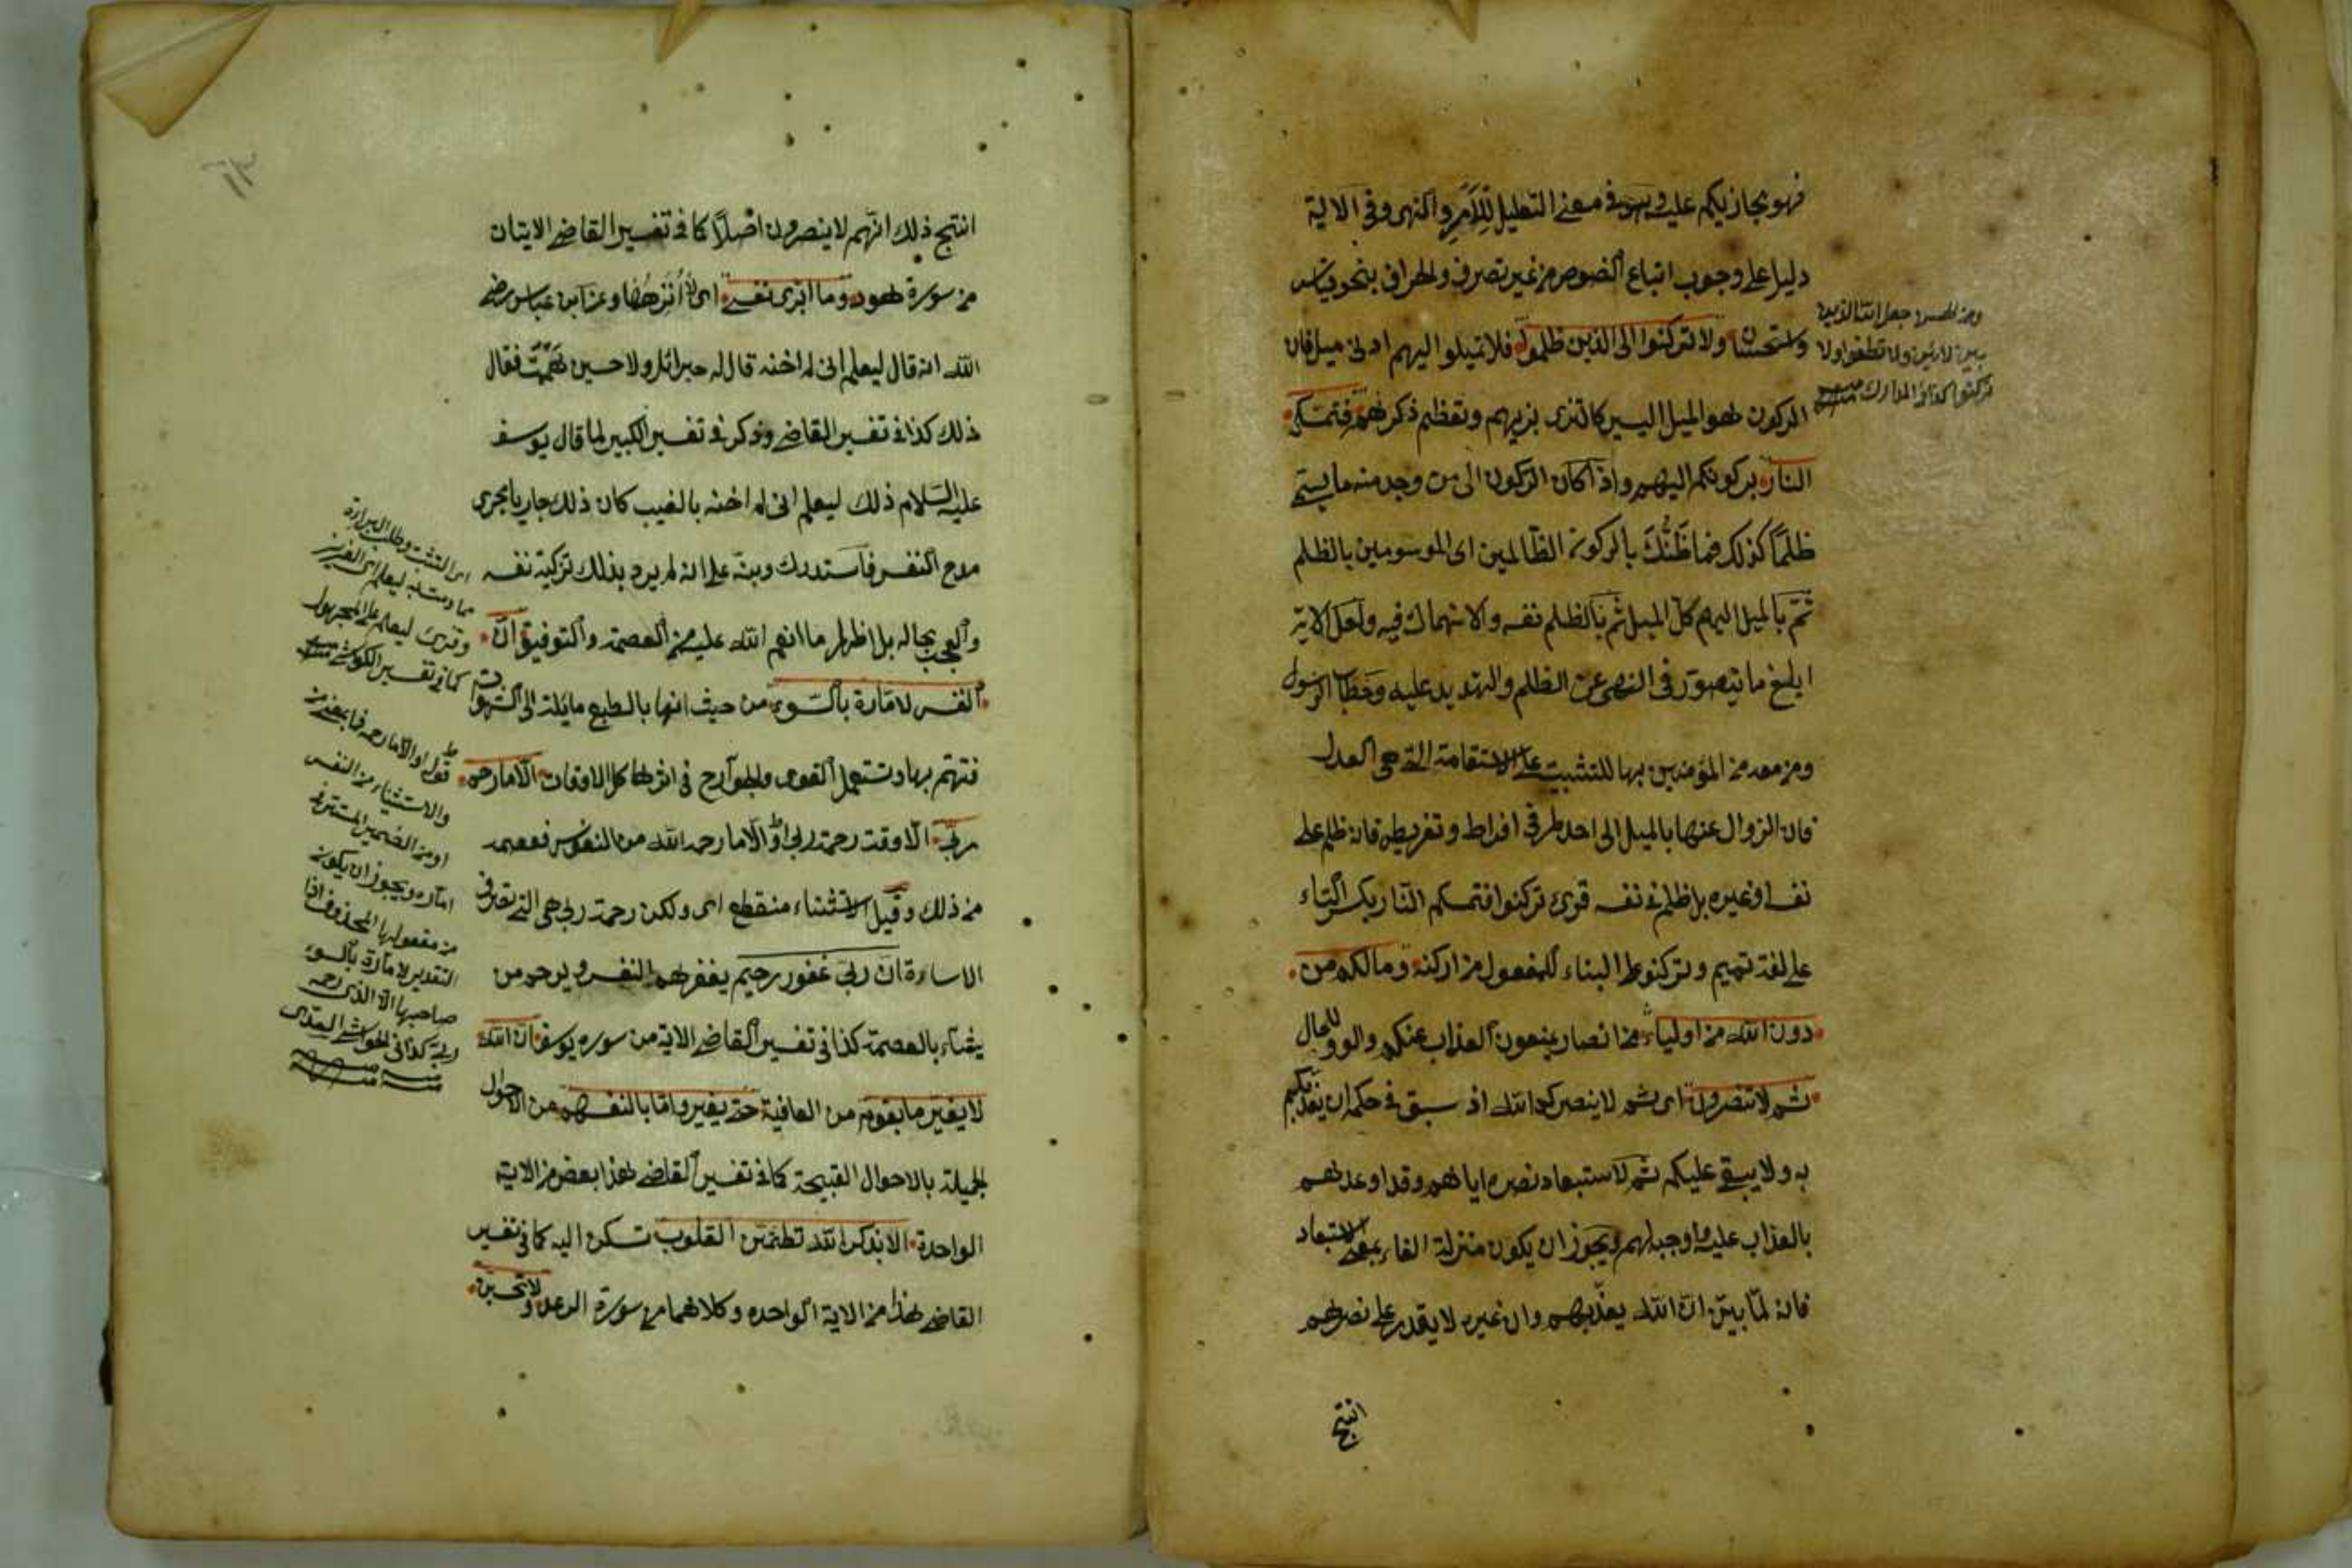 فهو يجازيكم عليه وهو في معنى التعليل للامر والنهى وفى الآية
دليل على وجوب اتباع النصوص من غير تصرف وانحراف بنحو قياس
واستحسان ولا تركنوا الى الذين ظلموا فلا تميلوا اليهم ادنى ميل فان
الركون هو الميل اليسير كالتزى بزيهم وتعظيم ذكرهم فتمسكم
النار بركونكم اليهم واذا كان الركون الى من وجد منه ما يسمى
ظلمًا كذلك فما ظنّك بالركون الظالمين اى الموسومين بالظلم
ثم بالميل اليهم كل الميل ثم بالظلم نفسه والانهماك فيه ولعل الاية
ابلغ ما يتصور فى النهى عن الظلم والتهديد عليه وخطاب الرسول
ومن معه من المؤمنين بها للتثبيت على الاستقامة التى هى العدل
فان الزوال عنها بالميل الى احد طرفى افراط وتفريط فانه ظلم على
نفسه او غيره بل ظلم فى نفسه قرئ تركنوا فتمسكم النار بكسر التاء
على لغة تميم وتركنوا على البناء للمفعول من اركنه وما لكم من
دون الله من اولياء من انصار يمنعون العذاب عنكم والواو للحال
ثم لا تنصرون اى ثم لا ينصركم الله اذ سبق فى حكمه ان يعذبكم
به ولا يبقى عليكم ثم لاستبعاد نصره اياهم وقد اوعدهم
بالعذاب عليه واوجبه لهم ويجوز ان يكون منزلة الفاء بمعنى الاستبعاد
فانه لما بيّن ان الله يعذبهم وان غيره لا يقدر على نصرهم
انتج
وعن الحسن جعل الله الدين
بين لاءين ولا تطغوا ولا
تركنوا كذا فى المدارك منه
انتج ذلك انهم لا ينصرون اصلاً كما فى تفسير القاضى الايتان
من سورة هود وما ابرئ نفسى اى لا انزهها وعن ابن عباس رضى
الله انه قال ليعلم انى لم اخنه قال له جبرائل ولا حين هممت فقال
ذلك كذا فى تفسير القاضى وذكر فى تفسير الكبير لما قال يوسف
عليه السلام ذلك ليعلم انى لم اخنه بالغيب كان ذلك جاريا مجرى
مدح النفس فاستدرك وبنه على انه لم يرد بذلك تزكية نفسه
والعجب بحاله بل اظهار ما انعم الله عليه من العصمة والتوفيق ان
النفس لامارة بالسوء من حيث انها بالطبع مايلة الى الشهوات
فتهتم بها وتستعمل القوى والجوارح فى اثرها كل الاوقات الا ما رحم
ربى الا وقت رحمة ربى او الا ما رحمه الله من النفوس فعصمه
من ذلك وقيل الاستثناء منقطع اى ولكن رحمة ربى هى التى تصرف
الاساءة ان ربى غفور رحيم يغفر هم النفس ويرحم من
يشاء بالعصمة كذا فى تفسير القاضى الاية من سوره يوسف ان الله
لا يغير ما بقوم من العافية حتى يغيروا ما بانفسهم من الاحوال
الجميلة بالاحوال القبيحة كما فى تفسير القاضى هذا بعض من الاية
الواحدة الا بذكر الله تطمئن القلوب تسكن اليه كما فى تفسير
القاضى هذا من الاية الواحده وكلاهما من سورة الرعد ولا تحسبن
اى التثبت وطلب البراءة
مما رمت به ليعلم اى العزيز
وقرئ ليعلم على المجهول
كما فى تفسير الكواشى منه
قوله او الا ما رحمه فما بمعنى من
والاستثناء من النفس
او من الضمير المستتر فى
امارة ويجوز ان يكون
من مفعولها المحذوف اذا
التقدير لامارة بالسوء
صاحبها الا الذى رحمه
ربى كذا فى الحواشى السعدى
منه